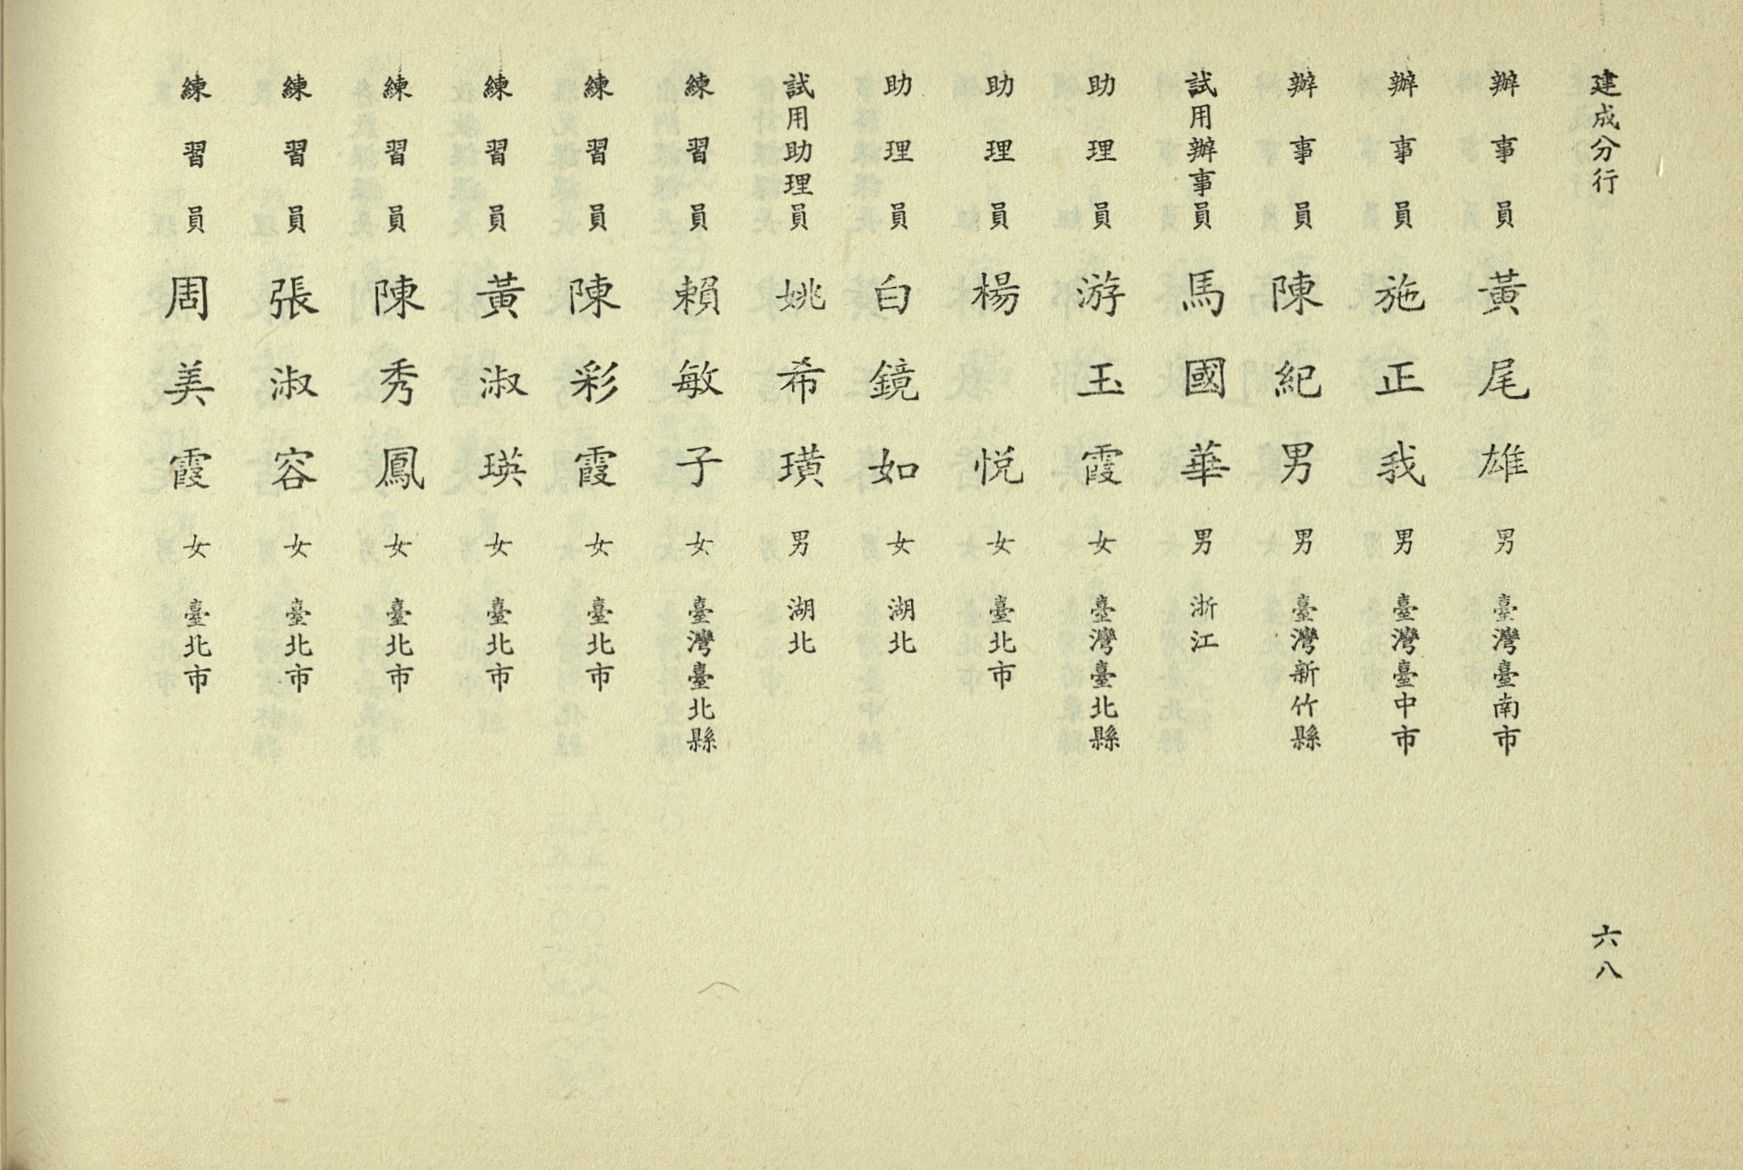 建成分行
六八
辦事員 黃尾雄 男 臺灣臺南市
辦事員 施正我 男 臺灣臺中市
辦事員 陳紀男 男 臺灣新竹縣
試用辦事員 馬國華 男 浙江
助理員 游玉霞 女 臺灣臺北縣
助理員 楊悅 女 臺北市
助理員 白鏡如 女 湖北
試用助理員 姚希璜 男 湖北
練習員 賴敏子 女 臺灣臺北縣
練習員 陳彩霞 女 臺北市
練習員 黃淑瑛 女 臺北市
練習員 陳秀鳳 女 臺北市
練習員 張淑容 女 臺北市
練習員 周美霞 女 臺北市